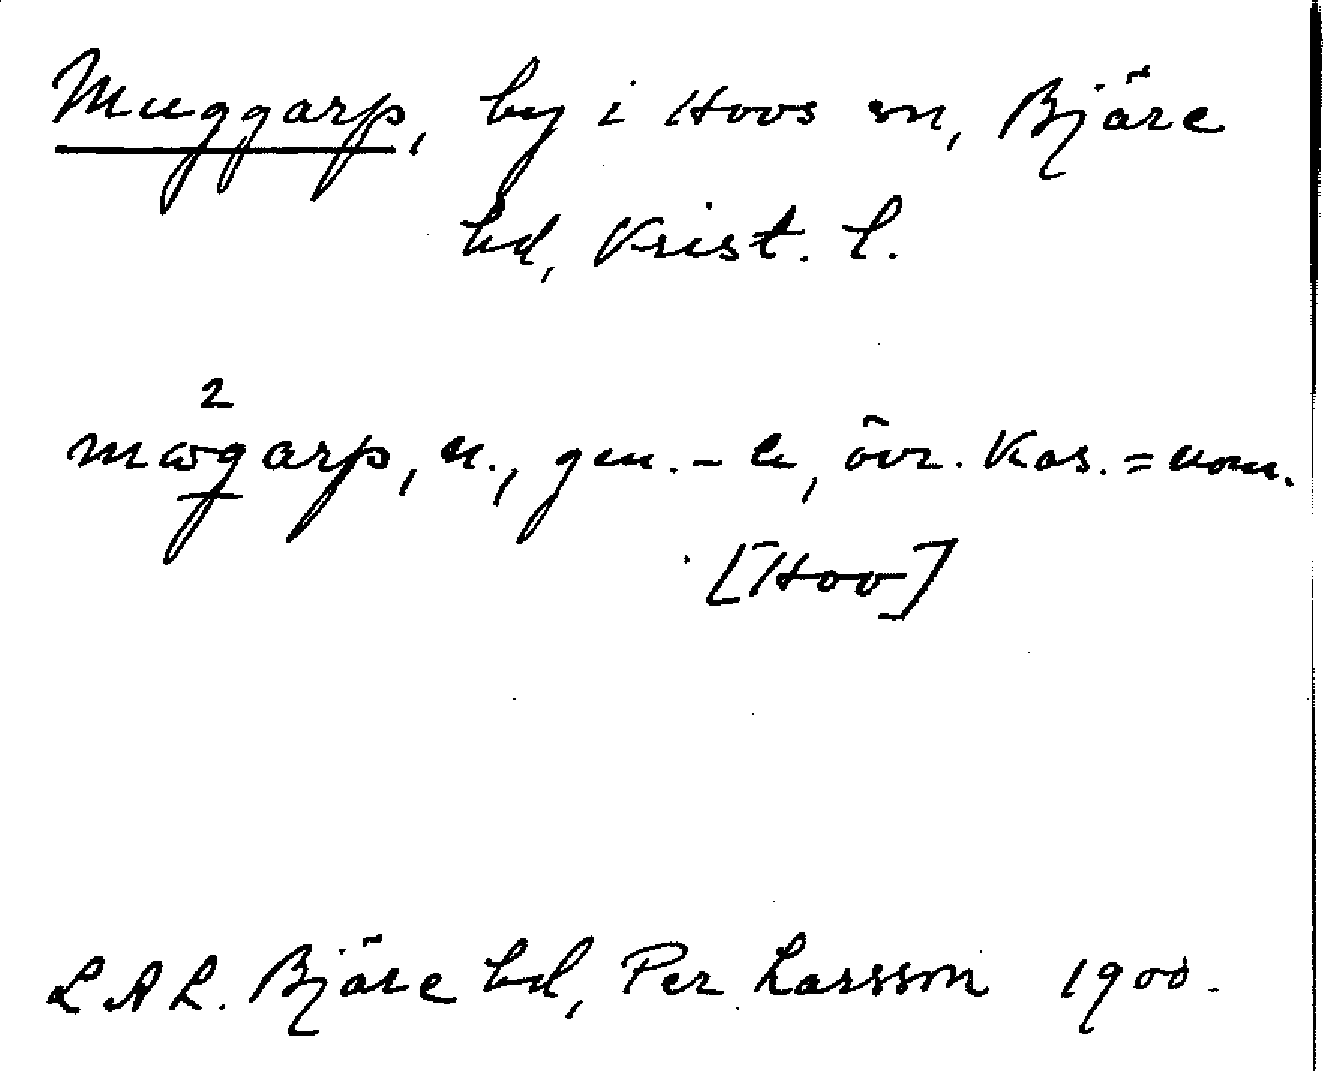 Muggarp, by i Hovs sn, Bjäre
hd, Krist. l.
2
mωgarp, n., gen. -s, övr. kas. = nom.
[Hov]
LAL. Bjäre hd, Per Larsson 1900.